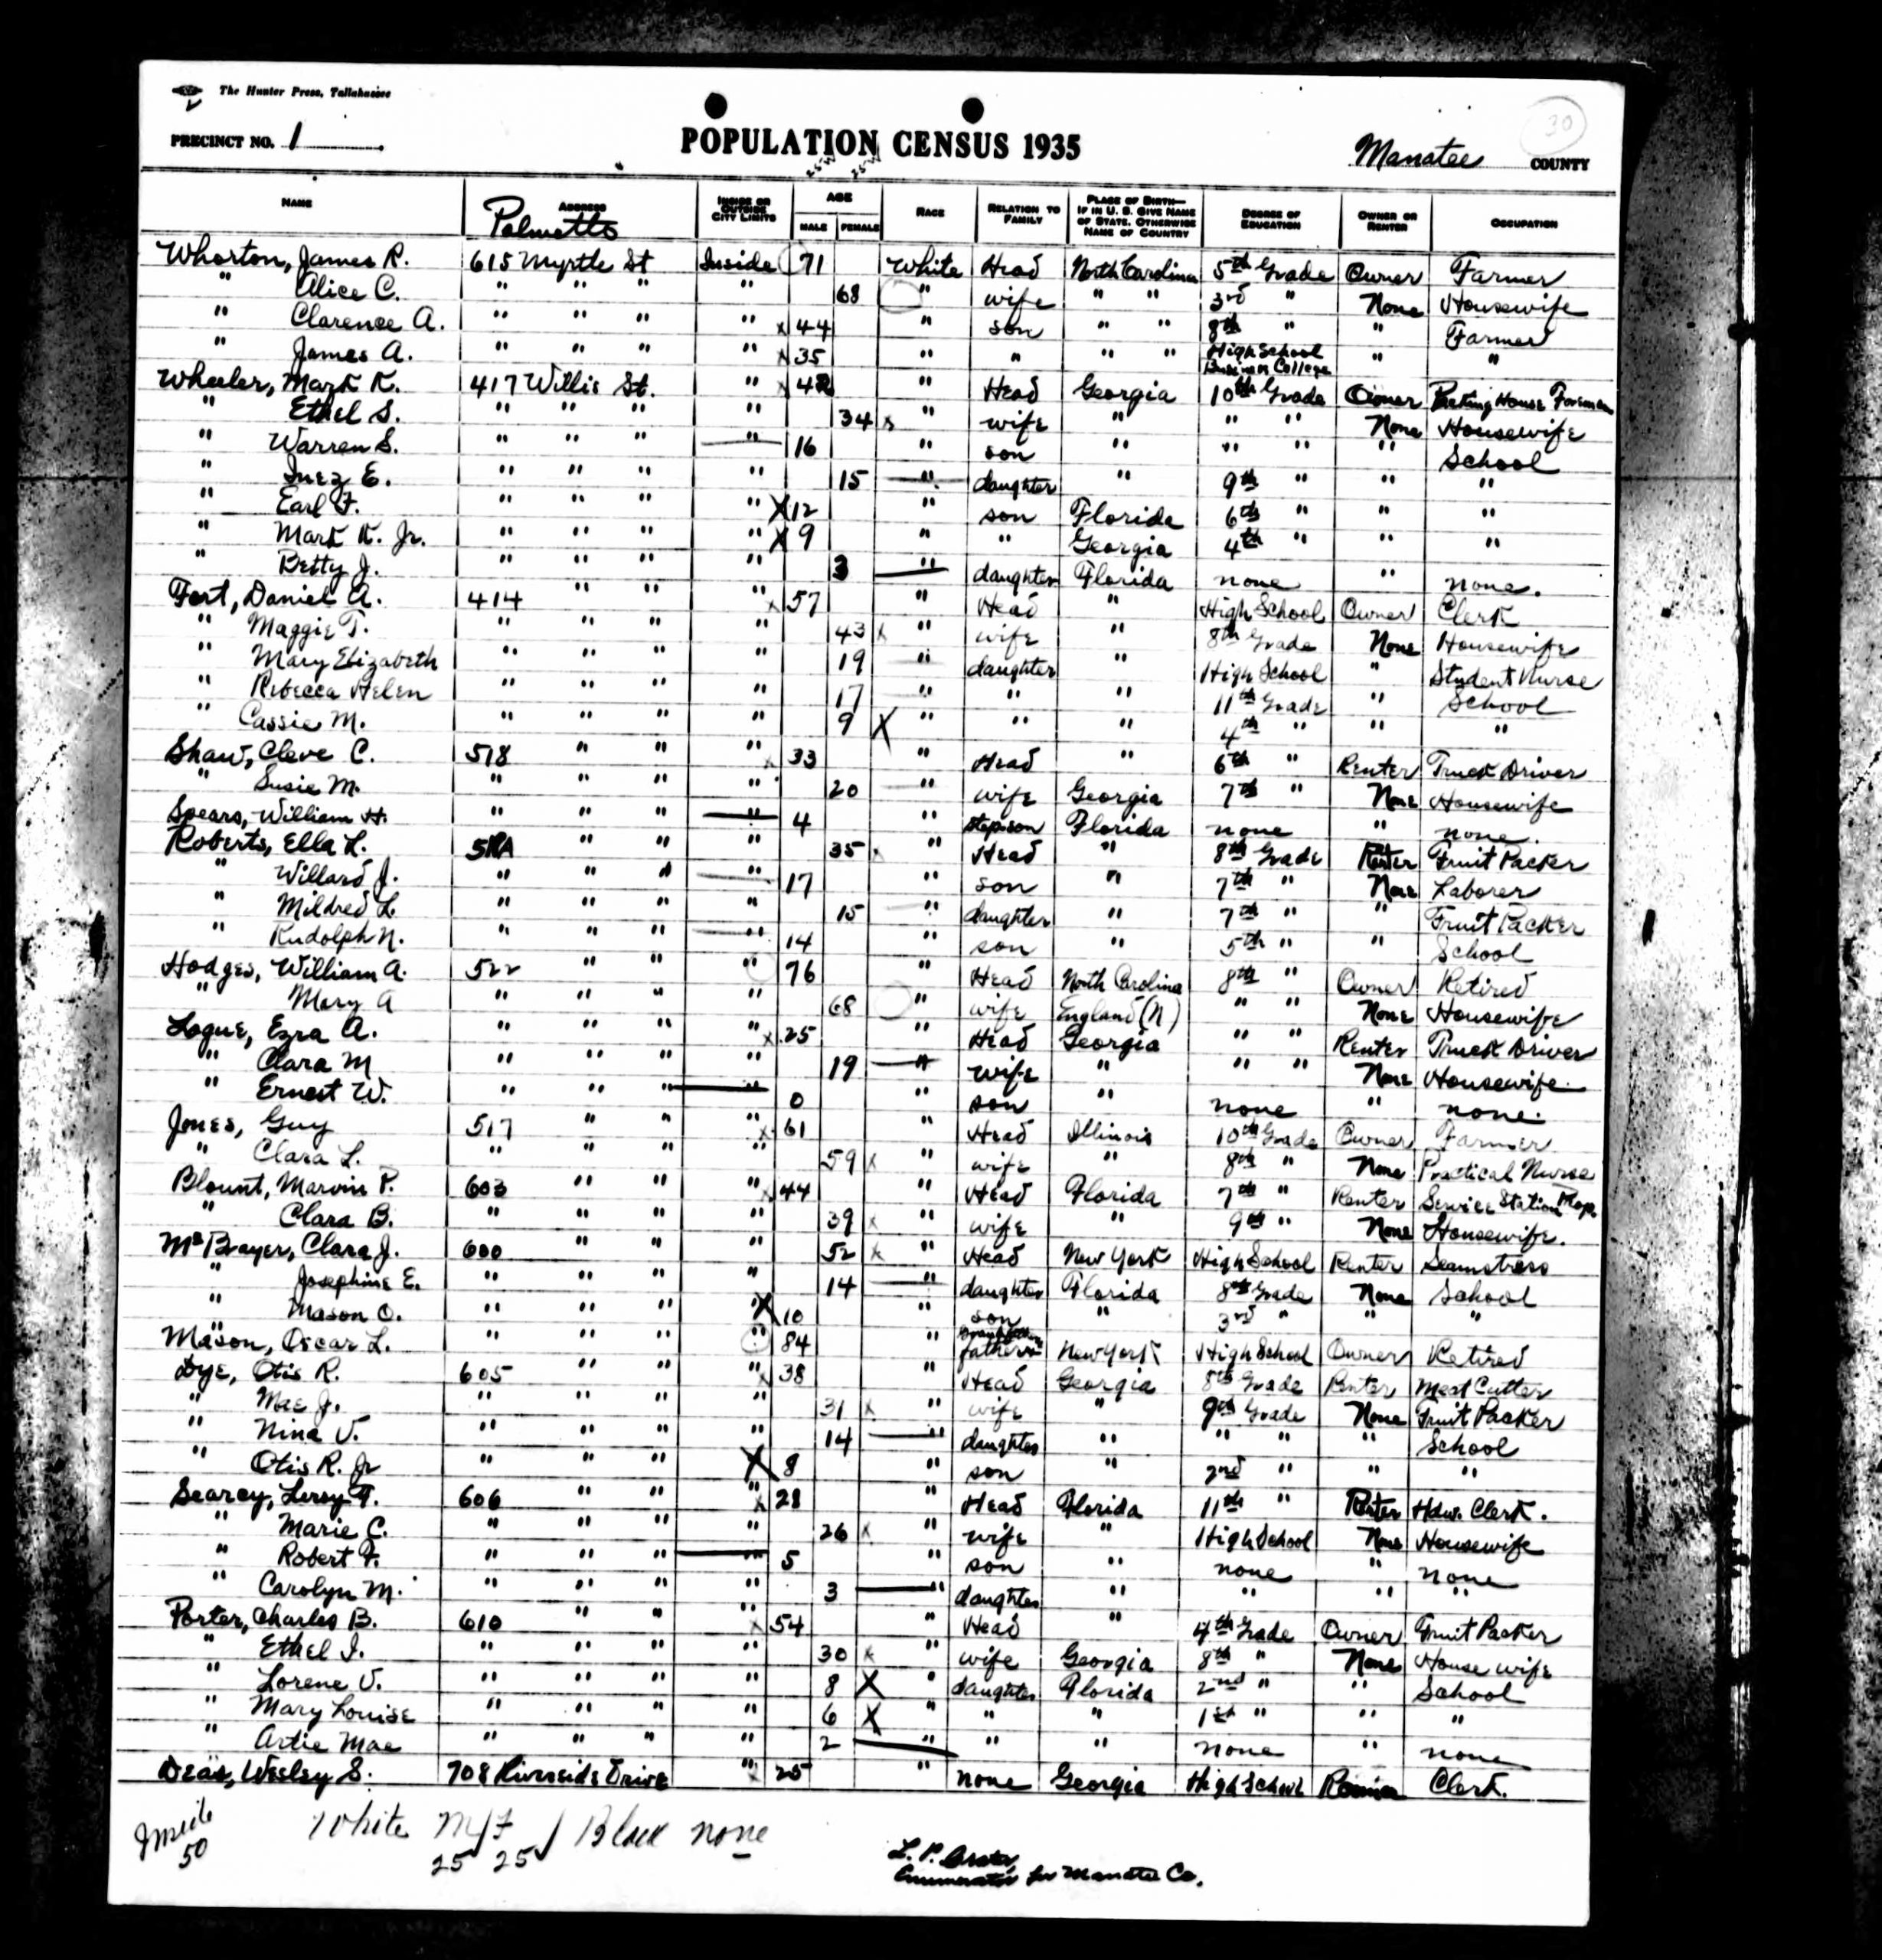 The Hunter Press, Tallahassee
30
PRECINCT NO. 1
POPULATION CENSUS 1935
Manatee COUNTY
25 W 25 W
NAME ADDRESS INSIDE OR OUTSIDE CITY LIMITS AGE MALE FEMALE RACE RELATION TO FAMILY PLACE OF BIRTH— IF IN U. S. GIVE NAME OF STATE. OTHERWISE NAME OF COUNTRY DEGREE OF EDUCATION OWNER OR RENTER OCCUPATION
Palmetto
Whorton, James R. 615 Myrtle St Inside 71 White Head North Carolina 5th Grade Owner Farmer
" Alice C. " " " " 68 " wife " " 3rd " None Housewife
" Clarence A. " " " " x 44 " son " " 8th " " Farmer
" James A. " " " " x 35 " " " " High School Business College " "
Wheeler, Mark K. 417 Willis St. " x 42 " Head Georgia 10th Grade Owner Packing House Foreman
" Ethel S. " " " " 34 x " wife " " " None Housewife
" Warren S. " " " " 16 " son " " " " School
" Inez E. " " " " 15 " daughter " 9th " " "
" Earl F. " " " " X 12 " son Florida 6th " " "
" Mark K. Jr. " " " " X 9 " " Georgia 4th " " "
" Betty J. " " " " 3 " daughter Florida none " none.
Fort, Daniel A. 414 " " " x 57 " Head " High School Owner Clerk
" Maggie T. " " " " 43 x " wife " 8th Grade None Housewife
" Mary Elizabeth " " " " 19 " daughter " High School " Student Nurse
" Rebecca Helen " " " " 17 " " " 11th Grade " School
" Cassie M. " " " " 9 X " " " 4th " " "
Shaw, Cleve C. 518 " " " x 33 " Head " 6th " Renter Truck Driver
" Susie M. " " " " 20 " wife Georgia 7th " None Housewife
Spears, William H. " " " " 4 " stepson Florida none " none.
Roberts, Ella L. " " " 35 x " Head " 8th Grade Renter Fruit Packer
" Willard J. " " " " 17 " son " 7th " None Laborer
" Mildred L. " " " " 15 " daughter " 7th " " Fruit Packer
" Rudolph N. " " " " 14 " son " 5th " " School
Hodges, William A. 522 " " " 76 " Head North Carolina 8th " Owner Retired
" Mary A " " " " 68 " wife England (N) " " None Housewife
Logue, Ezra A. " " " " x 25 " Head Georgia " " Renter Truck Driver
" Clara M " " " " 19 " wife " " " None Housewife
" Ernest W. " " " " 0 " son " none " none.
Jones, Guy 517 " " " x 61 " Head Illinois 10th Grade Owner Farmer
" Clara L. " " " " 59 x " wife " 8th " None Practical Nurse
Blount, Marvin P. 603 " " " x 44 " Head Florida 7th " Renter Service Station Prop.
" Clara B. " " " " 39 x " wife " 9th " None Housewife.
McBrayer, Clara J. 600 " " " 52 x " Head New York High School Renter Seamstress
" Josephine E. " " " " 14 " daughter Florida 8th Grade None School
" Mason O. " " " " X 10 " son " 3rd " " "
Mason, Oscar L. " " " " 84 " father New York High School Owner Retired
Dye, Otis R. 605 " " " x 38 " Head Georgia 8th Grade Renter Meat Cutter
" Mae J. " " " " 31 x " wife " 9th Grade None Fruit Packer
" Nina V. " " " " 14 " daughter " " " " School
" Otis R. Jr " " " X 8 " son " 2nd " " "
Searcy, Leroy F. 606 " " " x 28 " Head Florida 11th " Renter Hdw. Clerk.
" Marie C. " " " " 26 x " wife " High School None Housewife
" Robert F. " " " " 5 " son " none " none
" Carolyn M. " " " " 3 " daughter " " " "
Porter, Charles B. 610 " " " x 54 " Head " 4th Grade Owner Fruit Packer
" Ethel I. " " " " 30 x " wife Georgia 8th " None House wife
" Lorene V. " " " " 8 X " daughter Florida 2nd " " School
" Mary Louise " " " " 6 X " " " 1st " " "
" Artie Mae " " " " 2 " " " none " none
Deas, Wesley S. 708 Riverside Drive " x 25 " none Georgia High School Roomer Clerk.
Inside 50
White M/F / Black none
25 25
L. P.
Enumerator for Manatee Co.